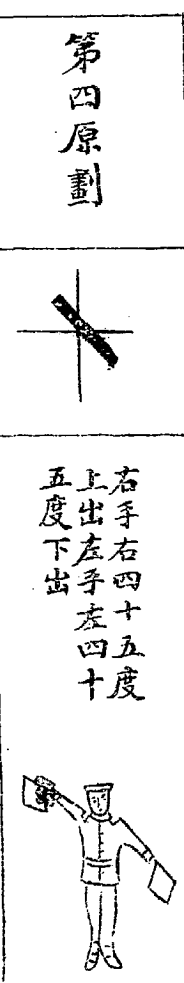 第四原劃
右手右四十五度
上出左手左四十
五度下出